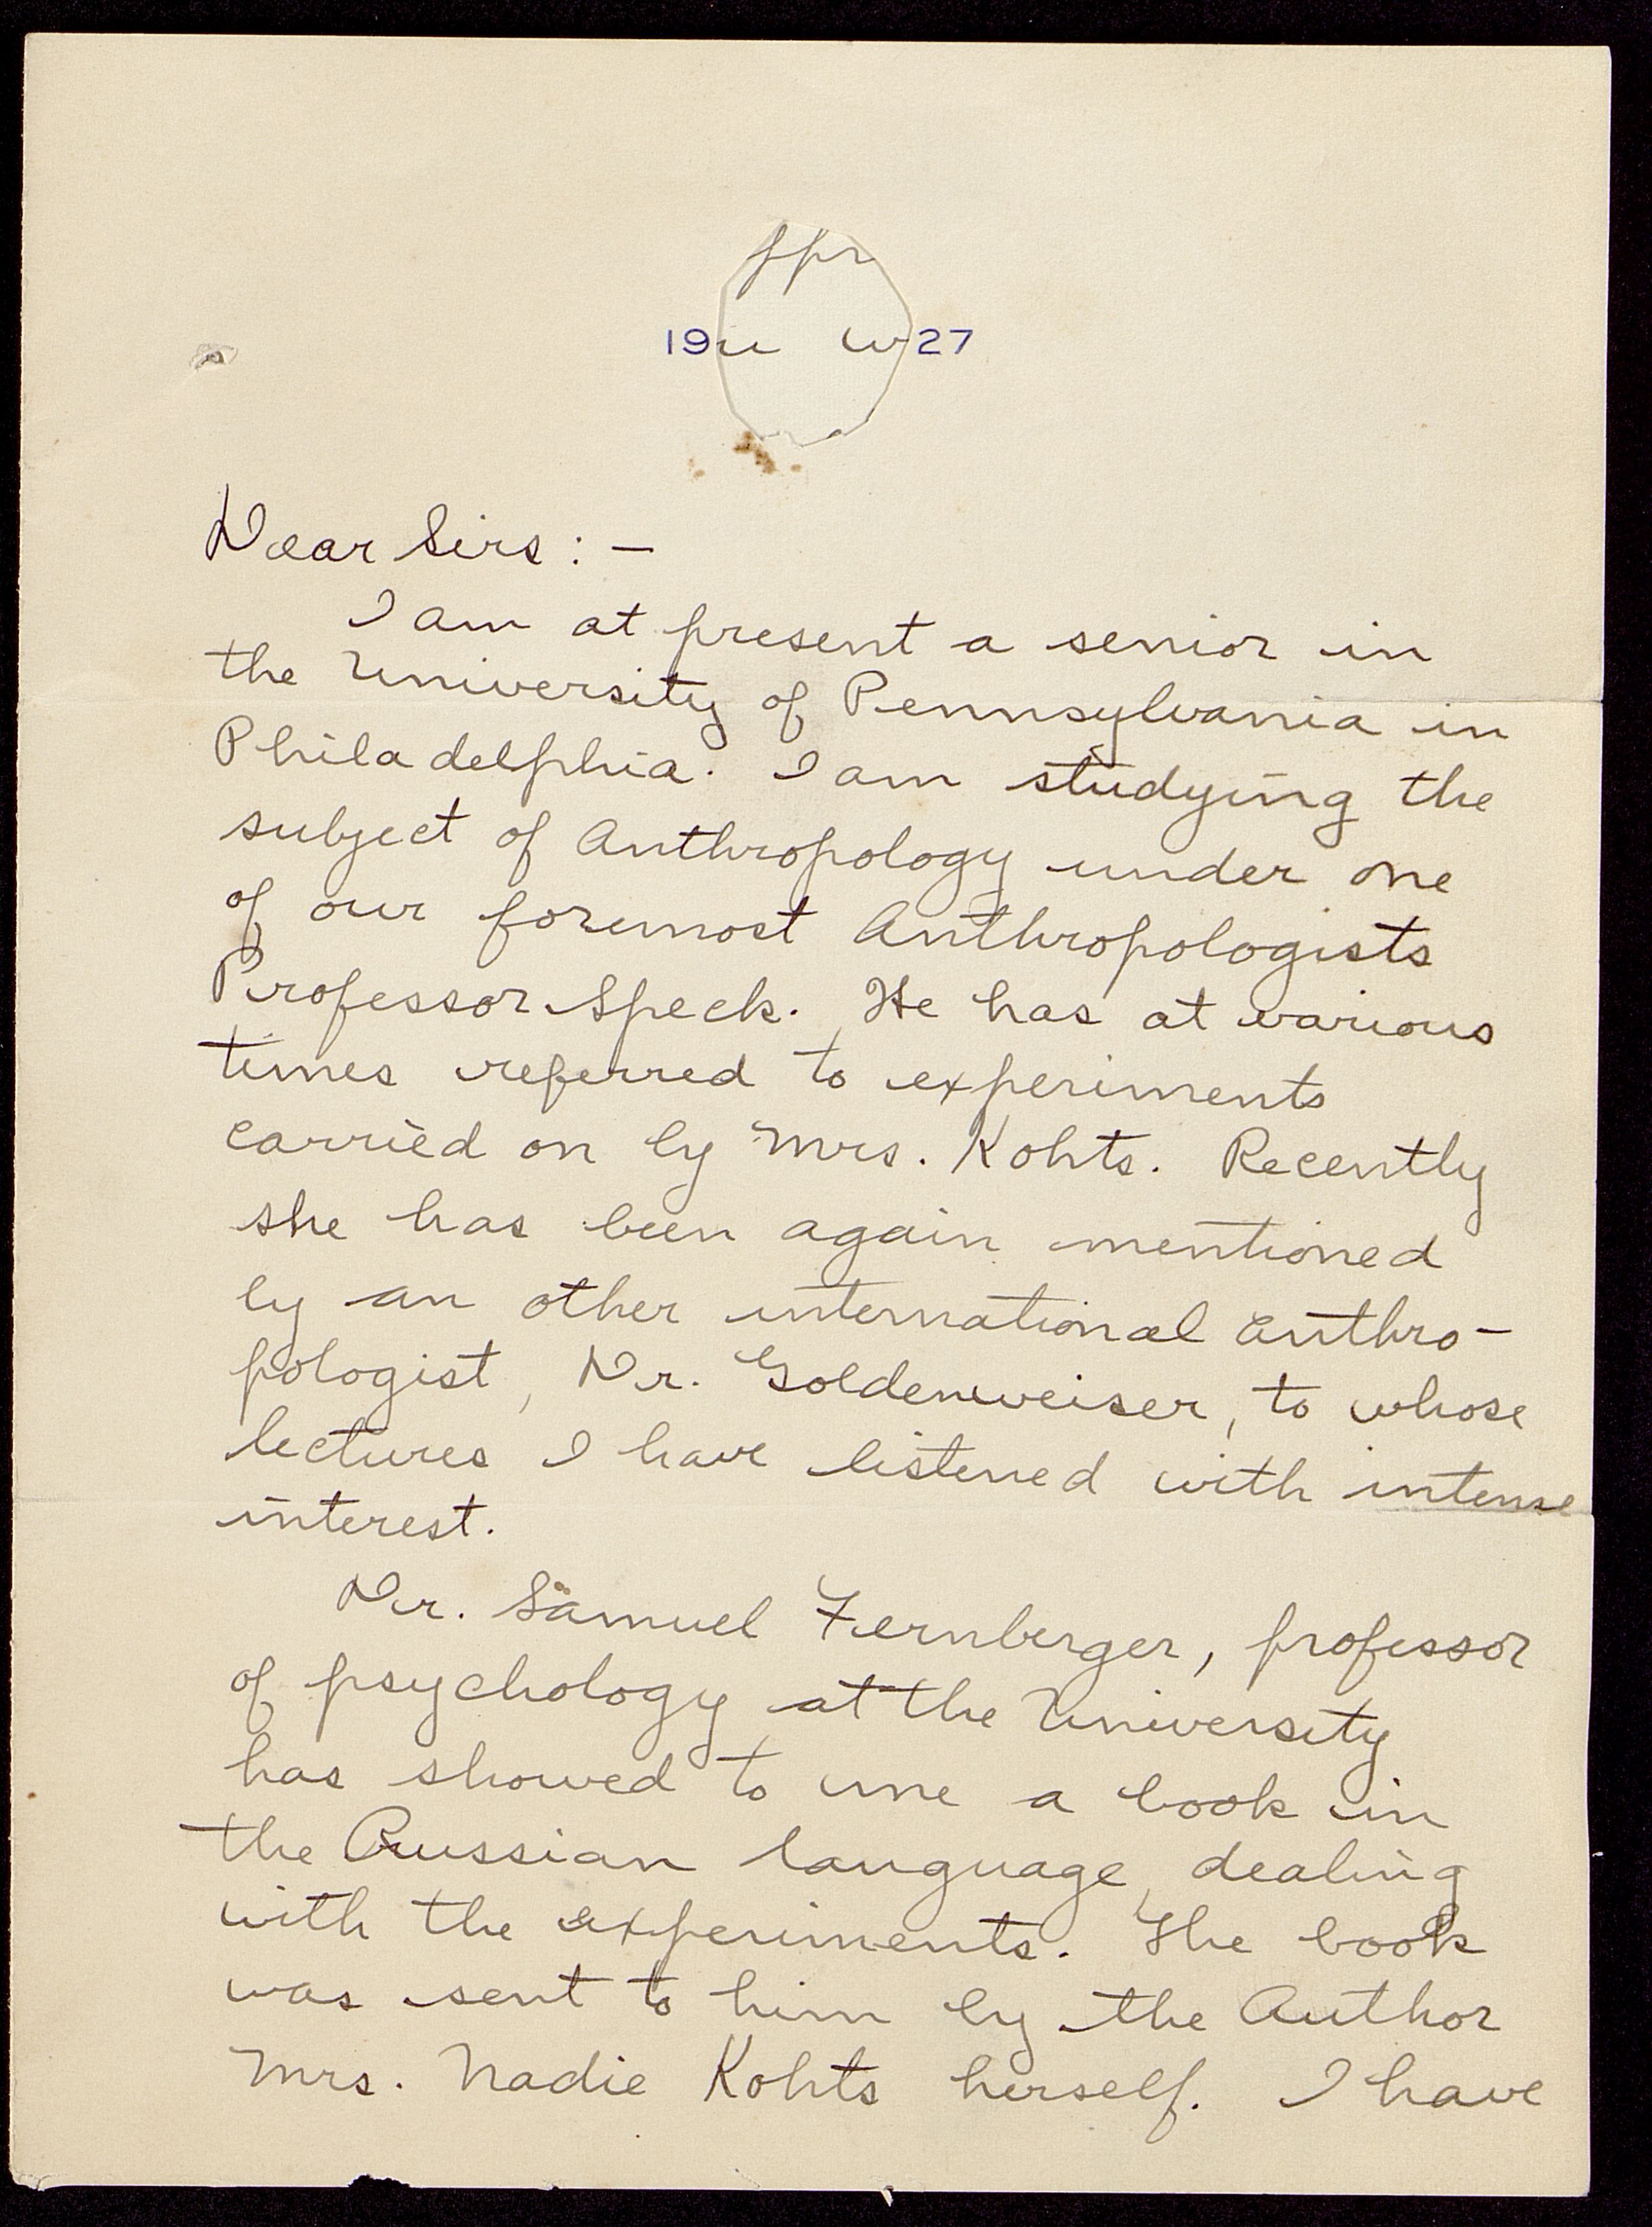 19 27
Dear Sirs : —
I am at present a senior in
the University of Pennsylvania in
Philadelphia. I am studying the
subject of Anthropology under one
of our foremost Anthropologists
Professor Speck. He has at various
times referred to experiments
carried on by Mrs. Kohts. Recently
she has been again mentioned
by an other international anthro-
pologist, Dr. Goldenweiser, to whose
lectures I have listened with intense
interest.
Dr. Samuel Fernberger, professor
of psychology at the University
has showed to me a book in
the Russian language, dealing
with the experiments. The book
was sent to him by the Author
Mrs. Nadie Kohts herself. I have